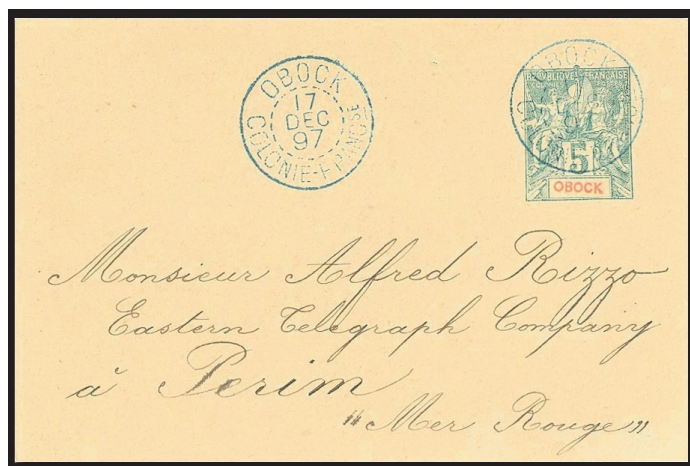 OBOCK
17
DEC
97
COLONIE-FRANÇSE
OBOCK
REPUBLIQUE FRANÇAISE
5
OBOCK
Monsieur Alfred Rizzo
Eastern Telegraph Company
à Perim
"Mer Rouge"